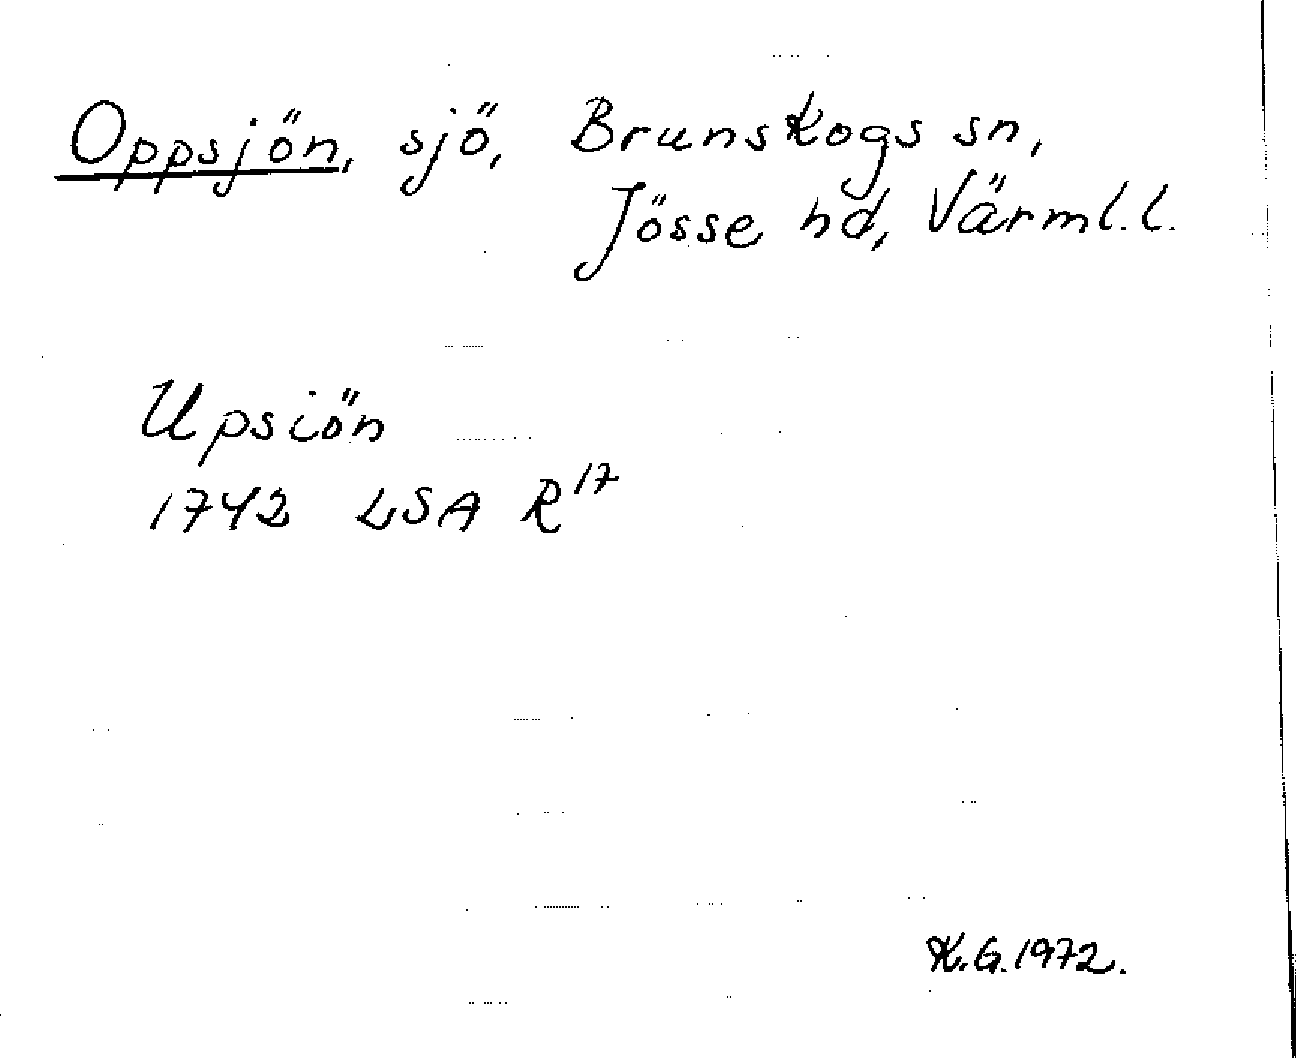 Oppsjön, sjö, Brunskogs sn,
Jösse hd, Värml. l.
Upsiön
1742 LSA R17
K.G. 1972.